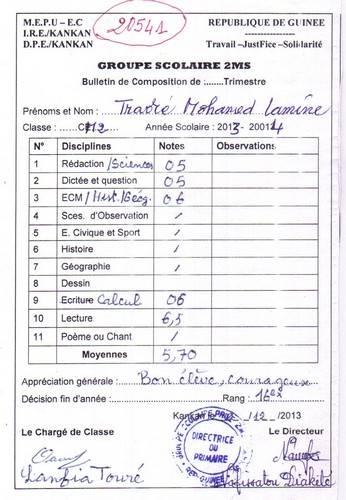 M.E.P.U – E.C REPUBLIQUE DE GUINEE
I.R.E./KANKAN ----------------
D.P.E/KANKAN Travail –JustFice –Solidarité
20541
GROUPE SCOLAIRE 2MS
Bulletin de Composition de :.......Trimestre
Prénoms et Nom : Traoré Mohamed Lamine
Classe : Année Scolaire : 2013- 20014
N° Disciplines Notes Observations
1 Rédaction /Sciences 05
2 Dictée et question 05
3 ECM /Hist./Géog. 06
4 Sces. d'Observation /
5 E. Civique et Sport /
6 Histoire /
7 Géographie /
8 Dessin
9 Ecriture Calcul 06
10 Lecture 6,5
11 Poème ou Chant /
Moyennes 5,70
Appréciation générale : Bon élève, courageux
Décision fin d'année : Rang : 16ex
Kankan le /12 /2013
Le Chargé de Classe Le Directeur
DIRECTRICE
DU
PRIMAIRE
Lanfia Touré Diakité